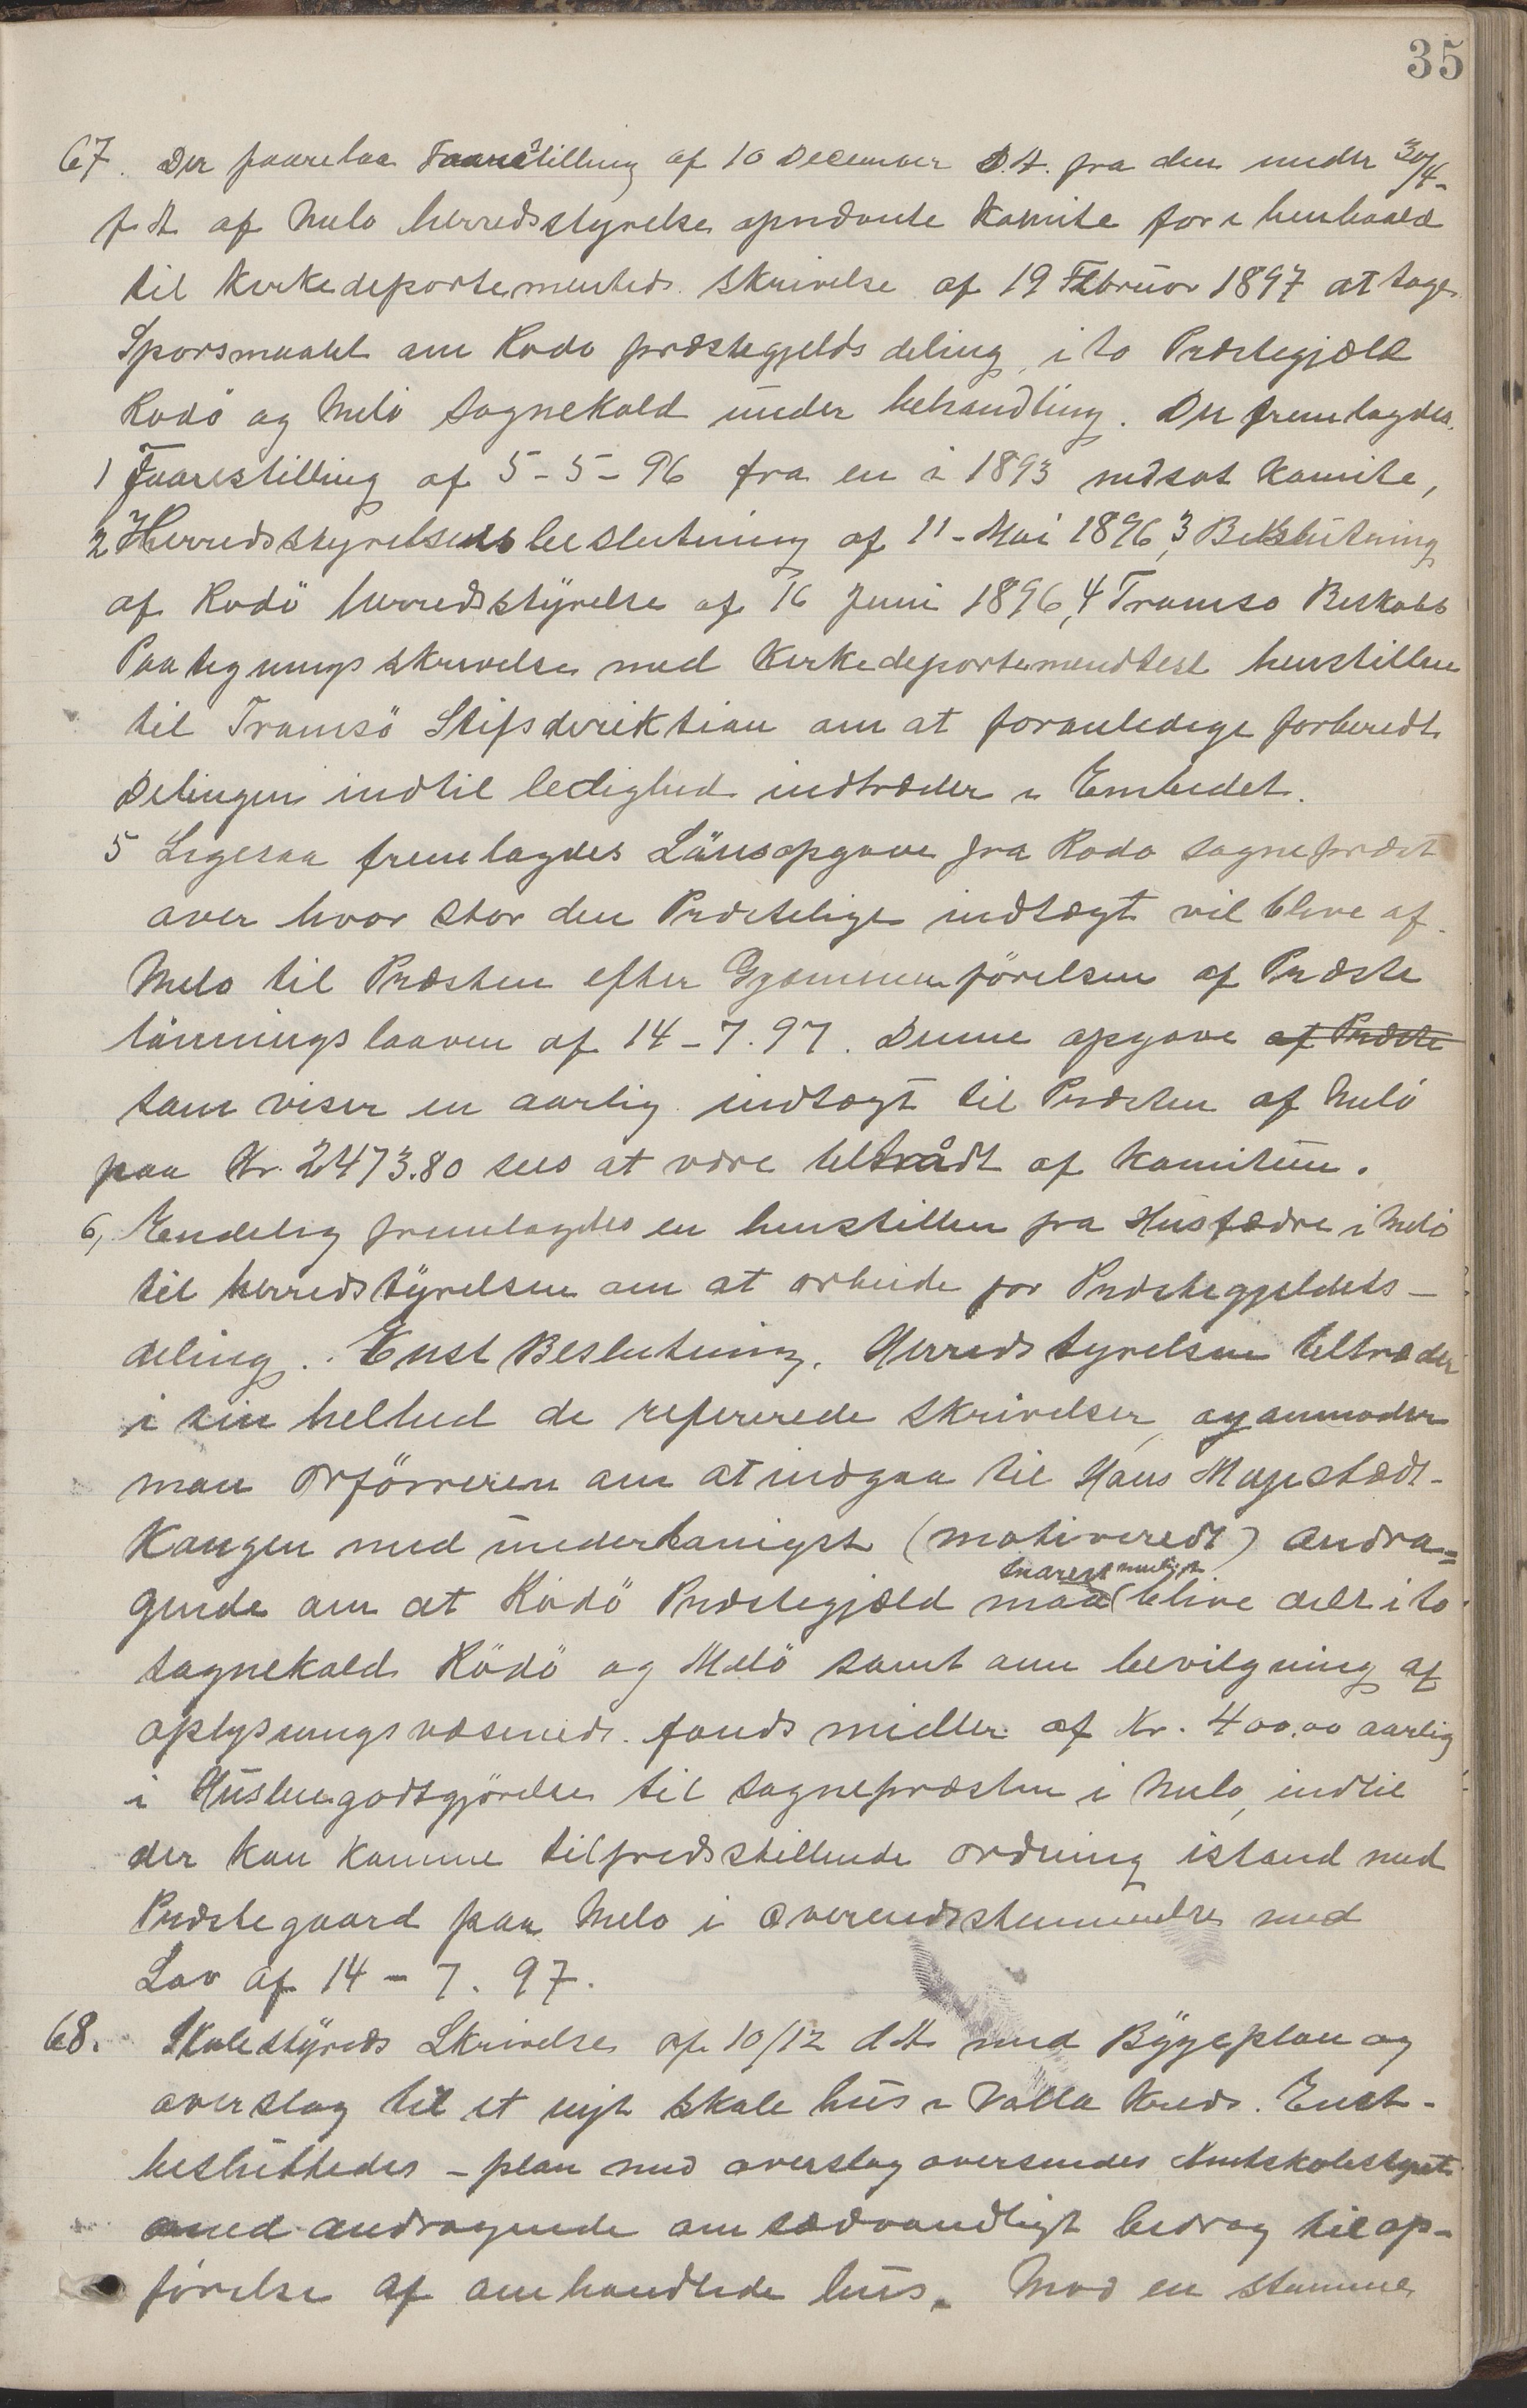 35
67. Der faarelaa Faarestilling af 10 December d.A. fra den under 30/4-
f.A. af Melø herredsstyrelse opnævnte Komite for i henhaald
til Kirkedepartementeds skrivelse af 19 Februar 1897 at tage
Sporsmaalet am Rødø præstegjelds deling i to Præstegjæld
Rodö og Melö sognekald under behandling. Der fremlagdes.
1 Faarestilling af 5-5-96 fra en i 1893 nedsat Komite,
2 Herredsstyrelsens beslutning af 11-Mai 1896, 3 Beslutning
af Rodö herredsstyrelse af 16 Juni 1896, 4 Tromsø Biskobs
Paategnings skrivelse med Kirkedepartementest henstillen
til Tromsö Stifsderektion am at foranledige forberedt
Delingen indtil ledighed indtræder i Embedet.
5 Ligesaa fremlagdes Länsopgave fra Rodø sogneprest
over hvor stor den Præstelige indtægt vil blive af
Melø til Præsten efter Gjennemförelsen af Præste
länningslaaven af 14-7.97. Denne opgave af Præste
som viser en aarlig indtægt til Præsten af Melö
paa Kr. 2473.80 sees at være tiltrådt af Komiteen.
6, Eendelig fremlagdes en henstillen fra Husfædre i Melö
til herredstyrelsen am at arbeide for Præstegjeldets-
deling. Enst Beslutning. Herredstyrelsen tiltræder
i sin helhed de refererede skrivelser, og anmoder
man orförreren am at indgaa til Hans Majestædt-
Kangen med underdanigst (motiveredt) andra=
snarest muligst
gende am at Rödö Præstegjæld maa (blive delt i to
sagnekald Rödö og Melö samt am bevilgning af
oplysningsvæseneds fonds midler af Kr. 400.00 aarlig
i Husleiegodtgjörelse til sognepræsten i Melø, indtil
der kan komme tilfredsstillende ordning istand med
Præstegaard paa Melø i overendsstemmelse med
Lov af 14-7.97.
68. Skolestyreds Skrivelse af 10/12 d.A. med Bygeplan og
overslag til et nyt skole hus i Valla Kreds. Enst-
besluttedes - plan med overslag oversendes Amtskolestyret
med andragende am sædvandligt bedrag til op-
förelse af amhandlede hus. Mod en stemme